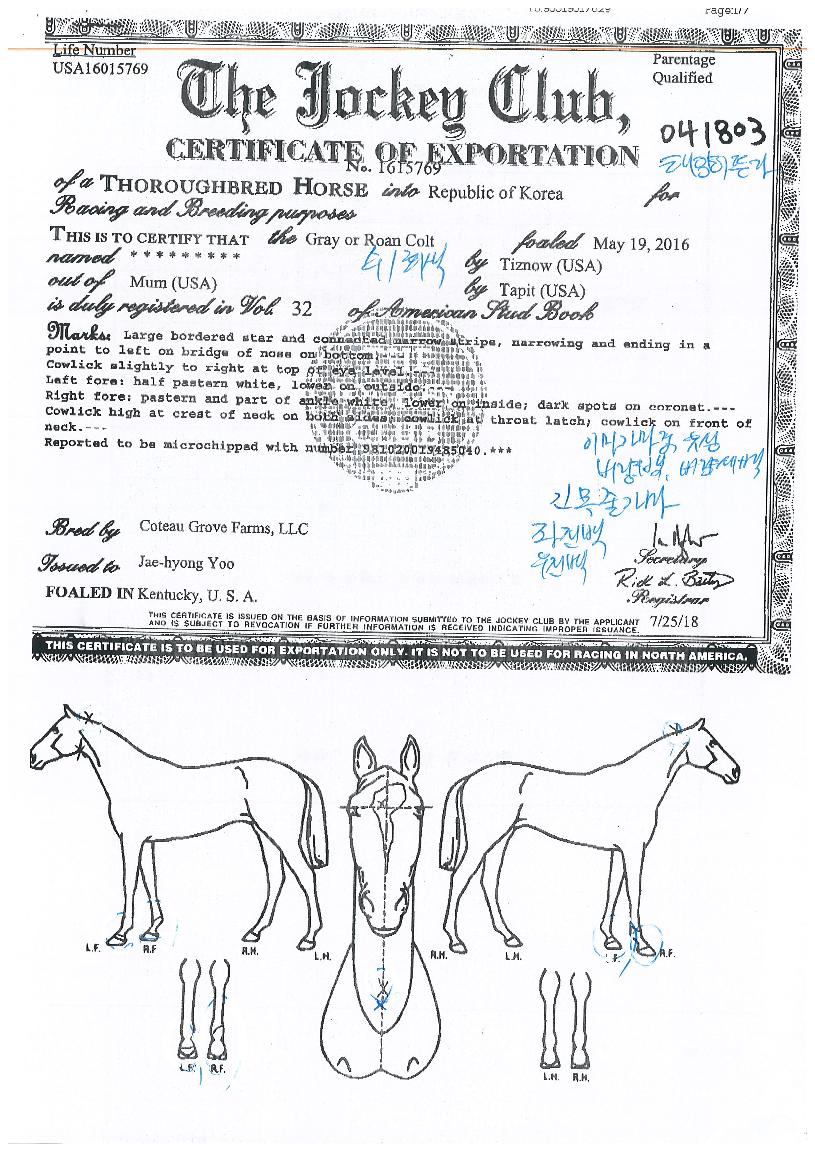 Page:1/7
Life Number
USA16015769
Parentage
Qualified
The Jockey Club,
041803
CERTIFICATE OF EXPORTATION
No. 1615769
of a THOROUGHBRED HORSE into Republic of Korea for
Racing and Breeding purposes
THIS IS TO CERTIFY THAT the Gray or Roan Colt foaled May 19, 2016
named * * * * * * * * * by Tiznow (USA)
out of Mum (USA) by Tapit (USA)
is duly registered in Vol. 32 of American Stud Book
Marks: Large bordered star and connected narrow stripe, narrowing and ending in a
point to left on bridge of nose on bottom.---
Cowlick slightly to right at top of eye level.---
Left fore: half pastern white, lower on outside.---
Right fore: pastern and part of ankle white, lower on inside; dark spots on coronet.---
Cowlick high at crest of neck on both sides; cowlick at throat latch; cowlick on front of
neck.---
Reported to be microchipped with number 981020019485040.***
긴목줄가마
좌전백
우전백
Bred by Coteau Grove Farms, LLC
Secretary
Issued to Jae-hyong Yoo
Registrar
FOALED IN Kentucky, U. S. A.
THIS CERTIFICATE IS ISSUED ON THE BASIS OF INFORMATION SUBMITTED TO THE JOCKEY CLUB BY THE APPLICANT
AND IS SUBJECT TO REVOCATION IF FURTHER INFORMATION IS RECEIVED INDICATING IMPROPER ISSUANCE. 7/25/18
THIS CERTIFICATE IS TO BE USED FOR EXPORTATION ONLY. IT IS NOT TO BE USED FOR RACING IN NORTH AMERICA.
L.F. R.F R.H. L.H. R.H. L.H. L.F. R.F.
L.F. R.F.
L.H. R.H.